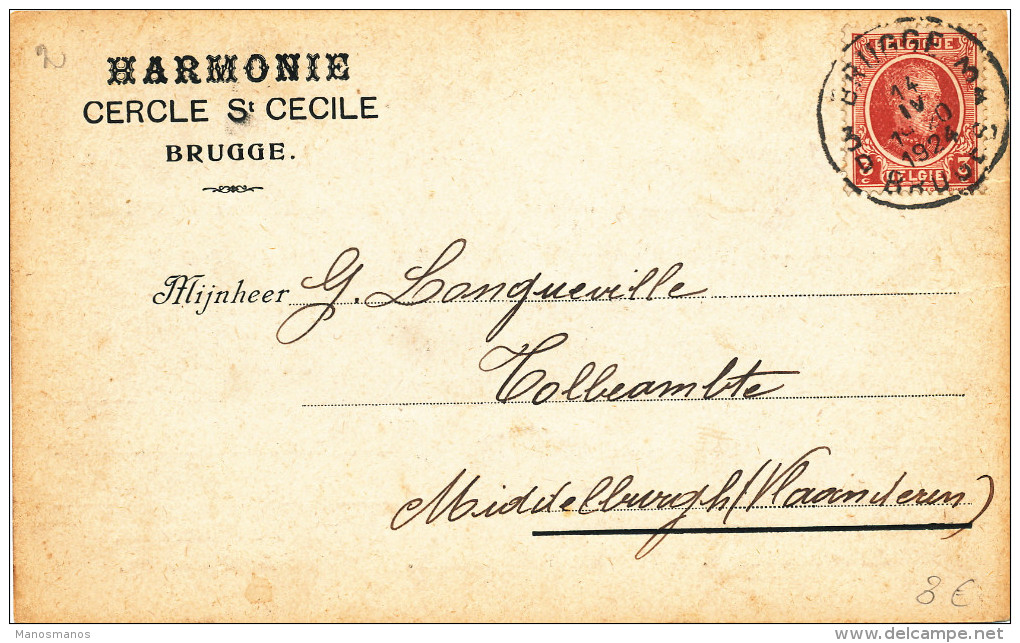 2
HARMONIE
CERCLE St CECILE
BRUGGE.
BELGIQUE
BELGIË
BRUGGE 3
14
IV
1924
3 BRUGES
Mijnheer G. Longueville
Tolbeambte
Middelburgh (Vlaanderen)
8 €
Manosmanos
delcampe.net